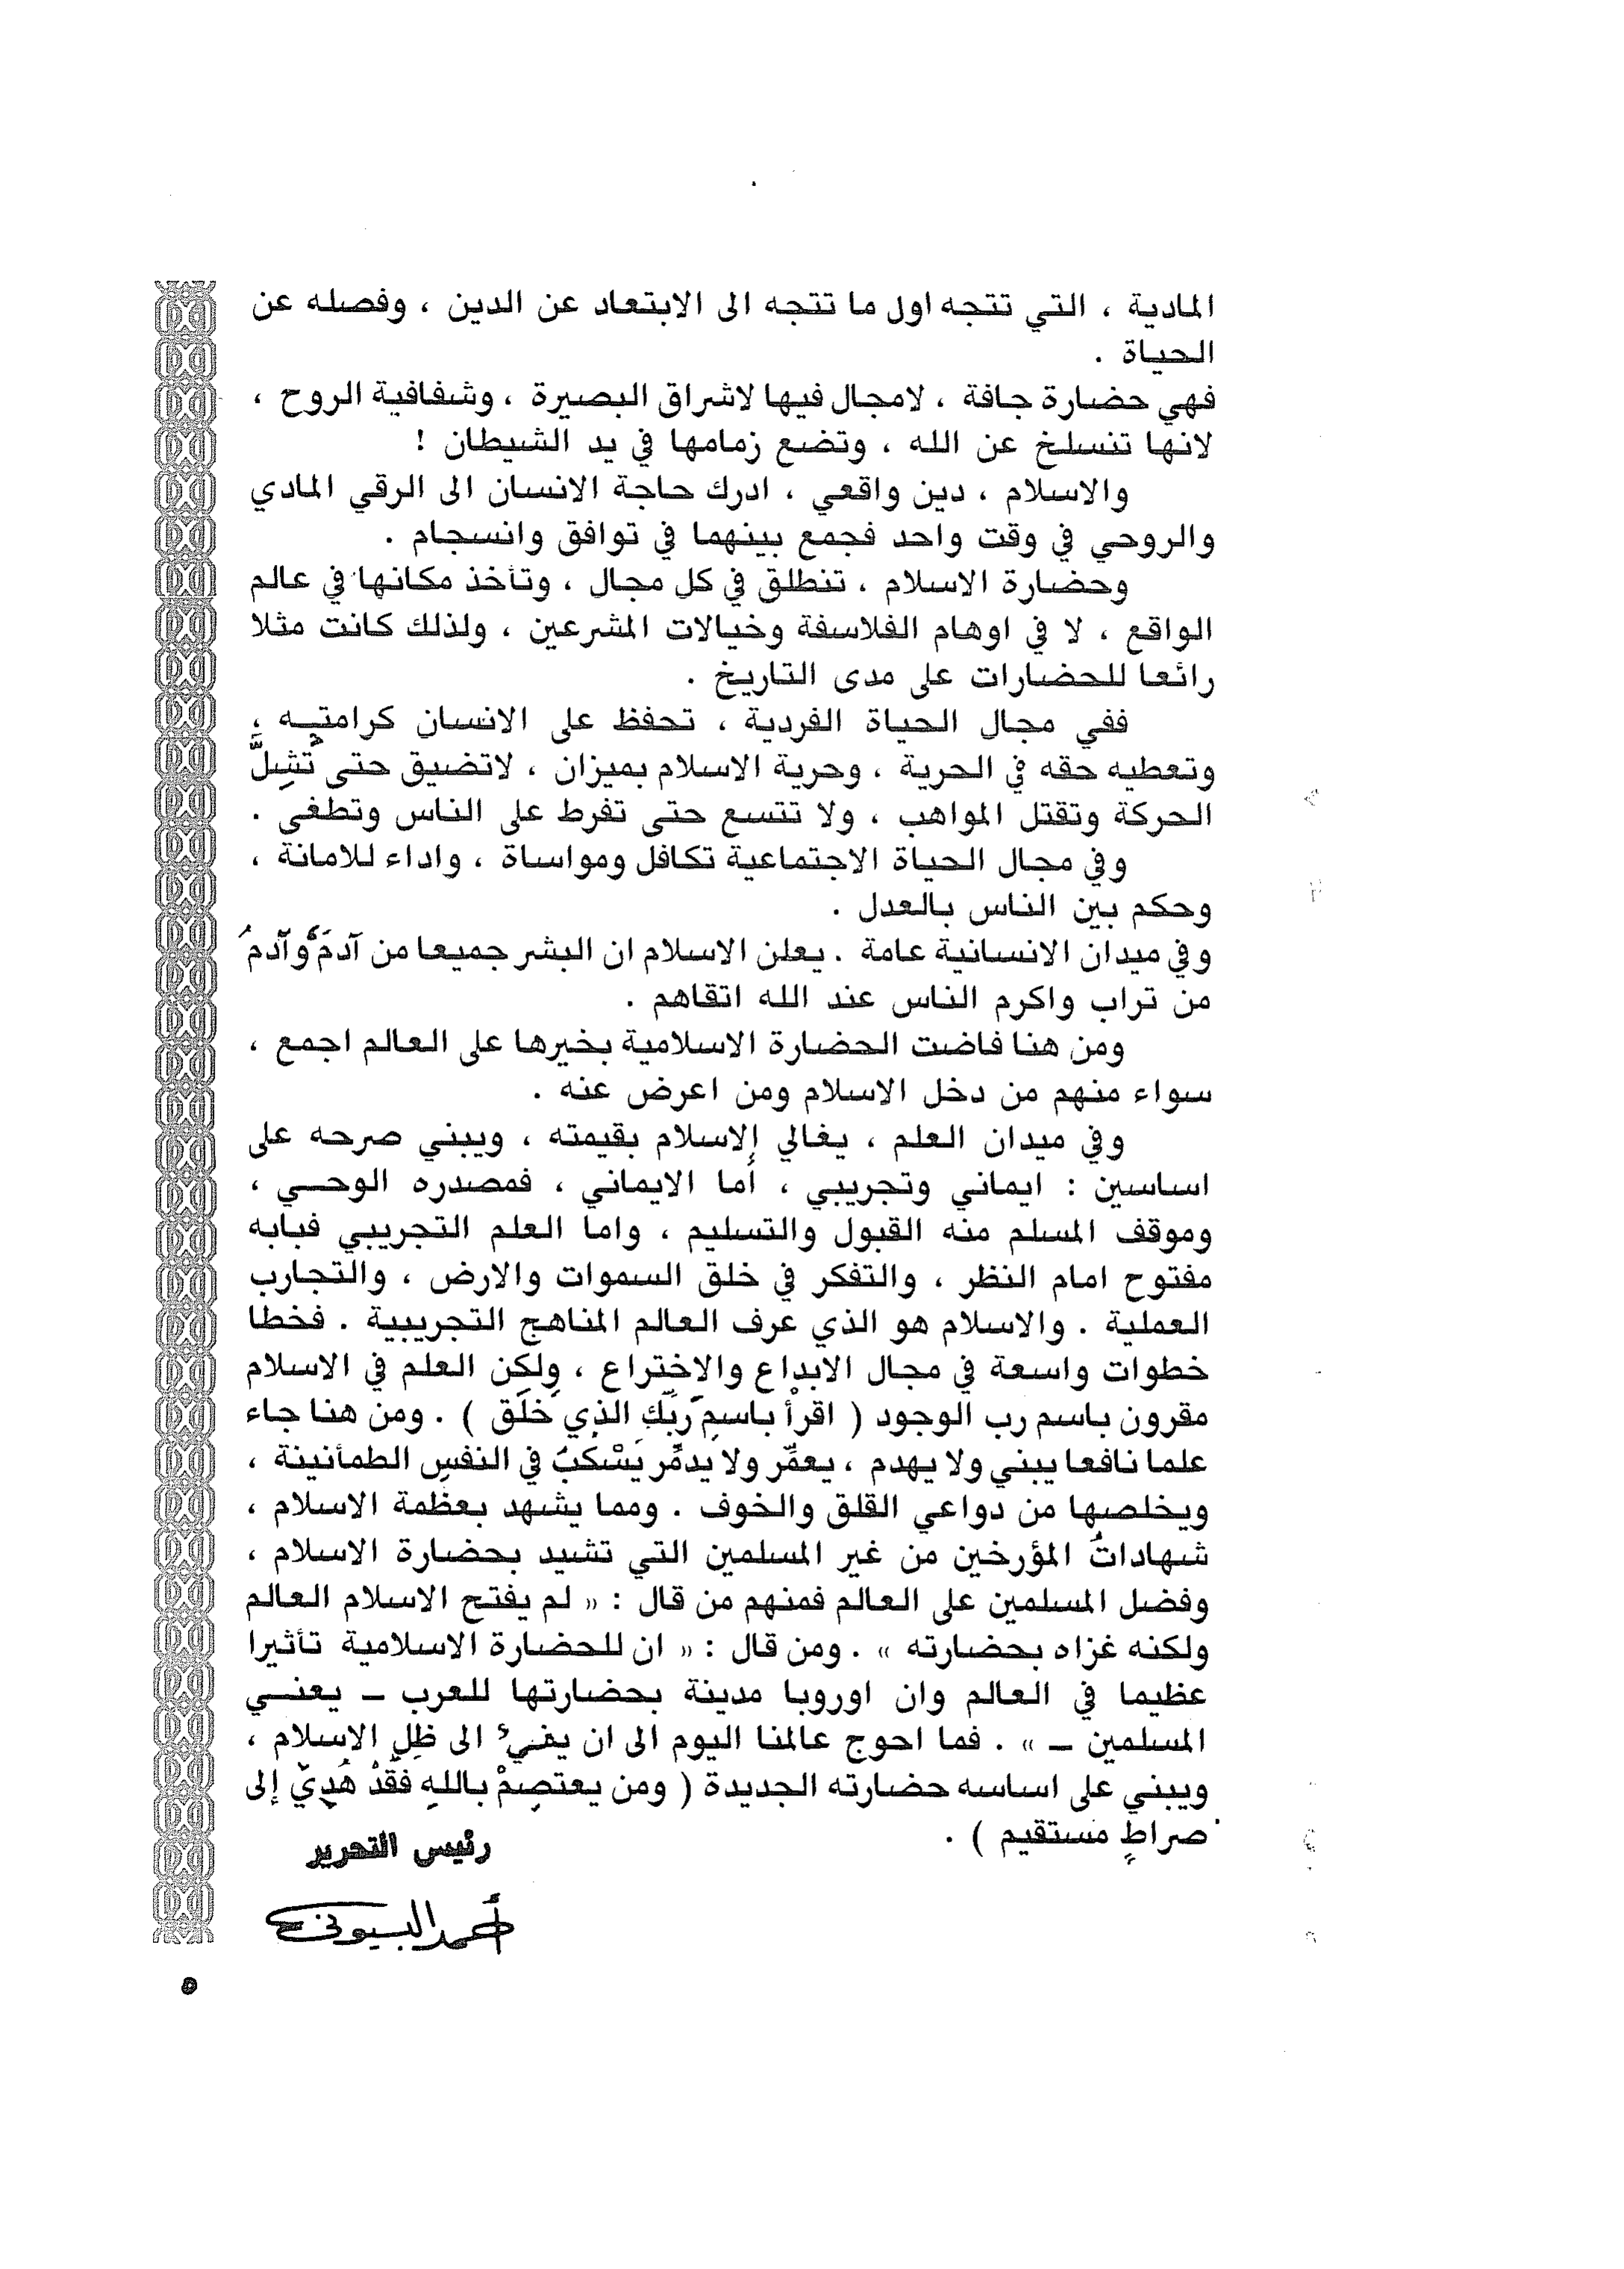 المادية ، التي تتجه اول ما تتجه الى الابتعاد عن الدين ، وفصله عن
الحياة .
فهي حضارة جافة ، لامجال فيها لاشراق البصيرة ، وشفافية الروح ،
لانها تنسلخ عن الله ، وتضع زمامها في يد الشيطان !
والاسلام ، دين واقعي ، ادرك حاجة الانسان الى الرقي المادي
والروحي في وقت واحد فجمع بينهما في توافق وانسجام .
وحضارة الاسلام ، تنطلق في كل مجال ، وتأخذ مكانها في عالم
الواقع ، لا في اوهام الفلاسفة وخيالات المشرعين ، ولذلك كانت مثلا
رائعا للحضارات على مدى التاريخ .
ففي مجال الحياة الفردية ، تحفظ على الانسان كرامته ،
وتعطيه حقه في الحرية ، وحرية الاسلام بميزان ، لاتضيق حتى تُشِلَّ
الحركة وتقتل المواهب ، ولا تتسع حتى تفرط على الناس وتطغى .
وفي مجال الحياة الاجتماعية تكافل ومواساة ، واداء للامانة ،
وحكم بين الناس بالعدل .
وفي ميدان الانسانية عامة . يعلن الاسلام ان البشر جميعا من آدمَ وآدمُ
من تراب واكرم الناس عند الله اتقاهم .
ومن هنا فاضت الحضارة الاسلامية بخيرها على العالم اجمع ،
سواء منهم من دخل الاسلام ومن اعرض عنه .
وفي ميدان العلم ، يغالي الاسلام بقيمته ، ويبني صرحه على
اساسين : ايماني وتجريبي ، أما الايماني ، فمصدره الوحي ،
وموقف المسلم منه القبول والتسليم ، واما العلم التجريبي فبابه
مفتوح امام النظر ، والتفكر في خلق السموات والارض ، والتجارب
العملية . والاسلام هو الذي عرف العالم المناهج التجريبية . فخطا
خطوات واسعة في مجال الابداع والاختراع ، ولكن العلم في الاسلام
مقرون باسم رب الوجود ( اقرأْ باسمِ رَبِّكَ الذِي خَلَق ) . ومن هنا جاء
علما نافعا يبني ولا يهدم ، يعمِّر ولا يدمِّر يَسْكبُ في النفسِ الطمأنينة ،
ويخلصها من دواعي القلق والخوف . ومما يشهد بعظمة الاسلام ،
شهاداتُ المؤرخين من غير المسلمين التي تشيد بحضارة الاسلام ،
وفضل المسلمين على العالم فمنهم من قال : « لم يفتح الاسلام العالم
ولكنه غزاه بحضارته » . ومن قال : « ان للحضارة الاسلامية تأثيرا
عظيما في العالم وان اوروبا مدينة بحضارتها للعرب ــ يعني
المسلمين ــ » . فما احوج عالمنا اليوم الى ان يفيءَ الى ظِلِ الاسلام ،
ويبني على اساسه حضارته الجديدة ( ومن يعتصِمْ باللهِ فقدْ هُدِيَ إلى
صراطٍ مستقيم ) .
رئيس التحرير
أحمد البسيوني
٥